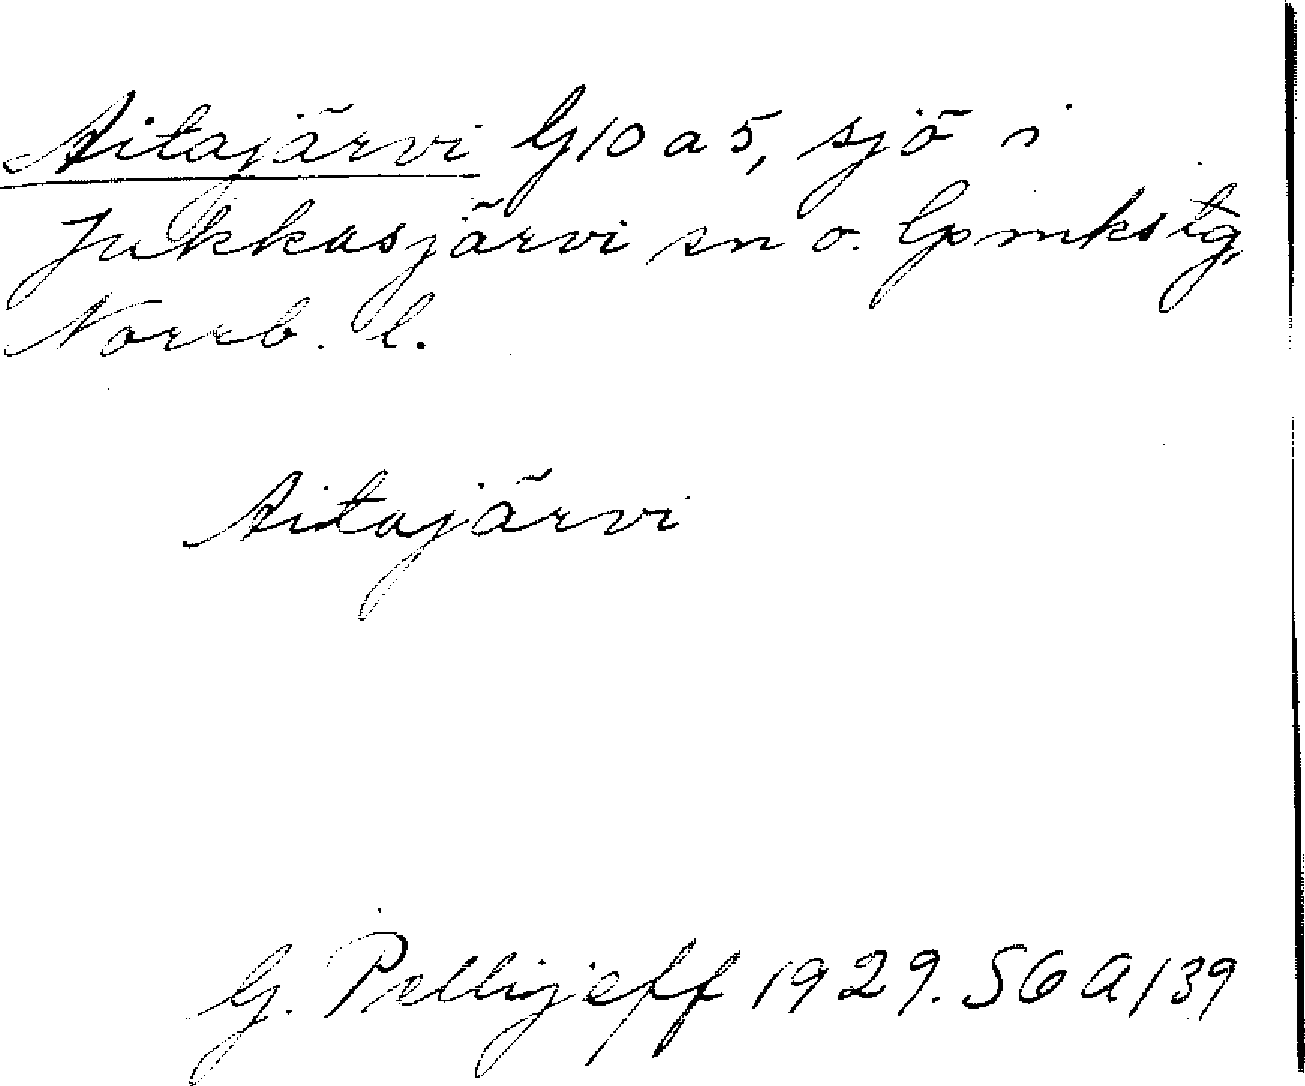 Aitajärvi G10a5, sjö i
Jukkasjärvi sn o. lpmkstg,
Norrb. l.
Aitajärvi
G. Pellijeff 1929. SGA/39